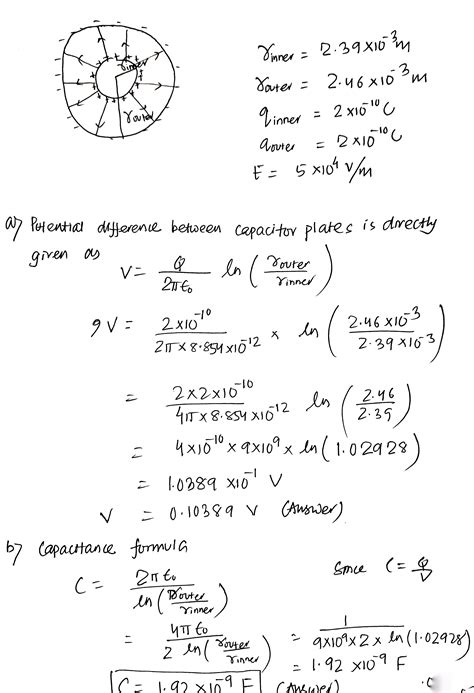 rinner
router
rinner = 2.39×10⁻³m
router = 2.46×10⁻³m
qinner = 2×10⁻¹⁰C
qouter = 2×10⁻¹⁰C
E = 5×10⁴ V/m
a) Potential difference between capacitor plates is directly
given as V = Q/2πϵ₀ ln(router/rinner)
9V = 2×10⁻¹⁰/2π×8.854×10⁻¹² × ln(2.46×10⁻³/2.39×10⁻³)
= 2×2×10⁻¹⁰/4π×8.854×10⁻¹² ln(2.46/2.39)
= 4×10⁻¹⁰×9×10⁹×ln(1.02928)
= 1.0389×10⁻¹ V
V = 0.10389 V (Answer)
b) Capacitance formula
C = 2πϵ₀/ln(router/rinner) Since C = Q/V
= 4πϵ₀/2 ln(router/rinner) = 1/9×10⁹×2×ln(1.02928)
= 1.92×10⁻⁹ F
C = 1.92×10⁻⁹ F (Answer)